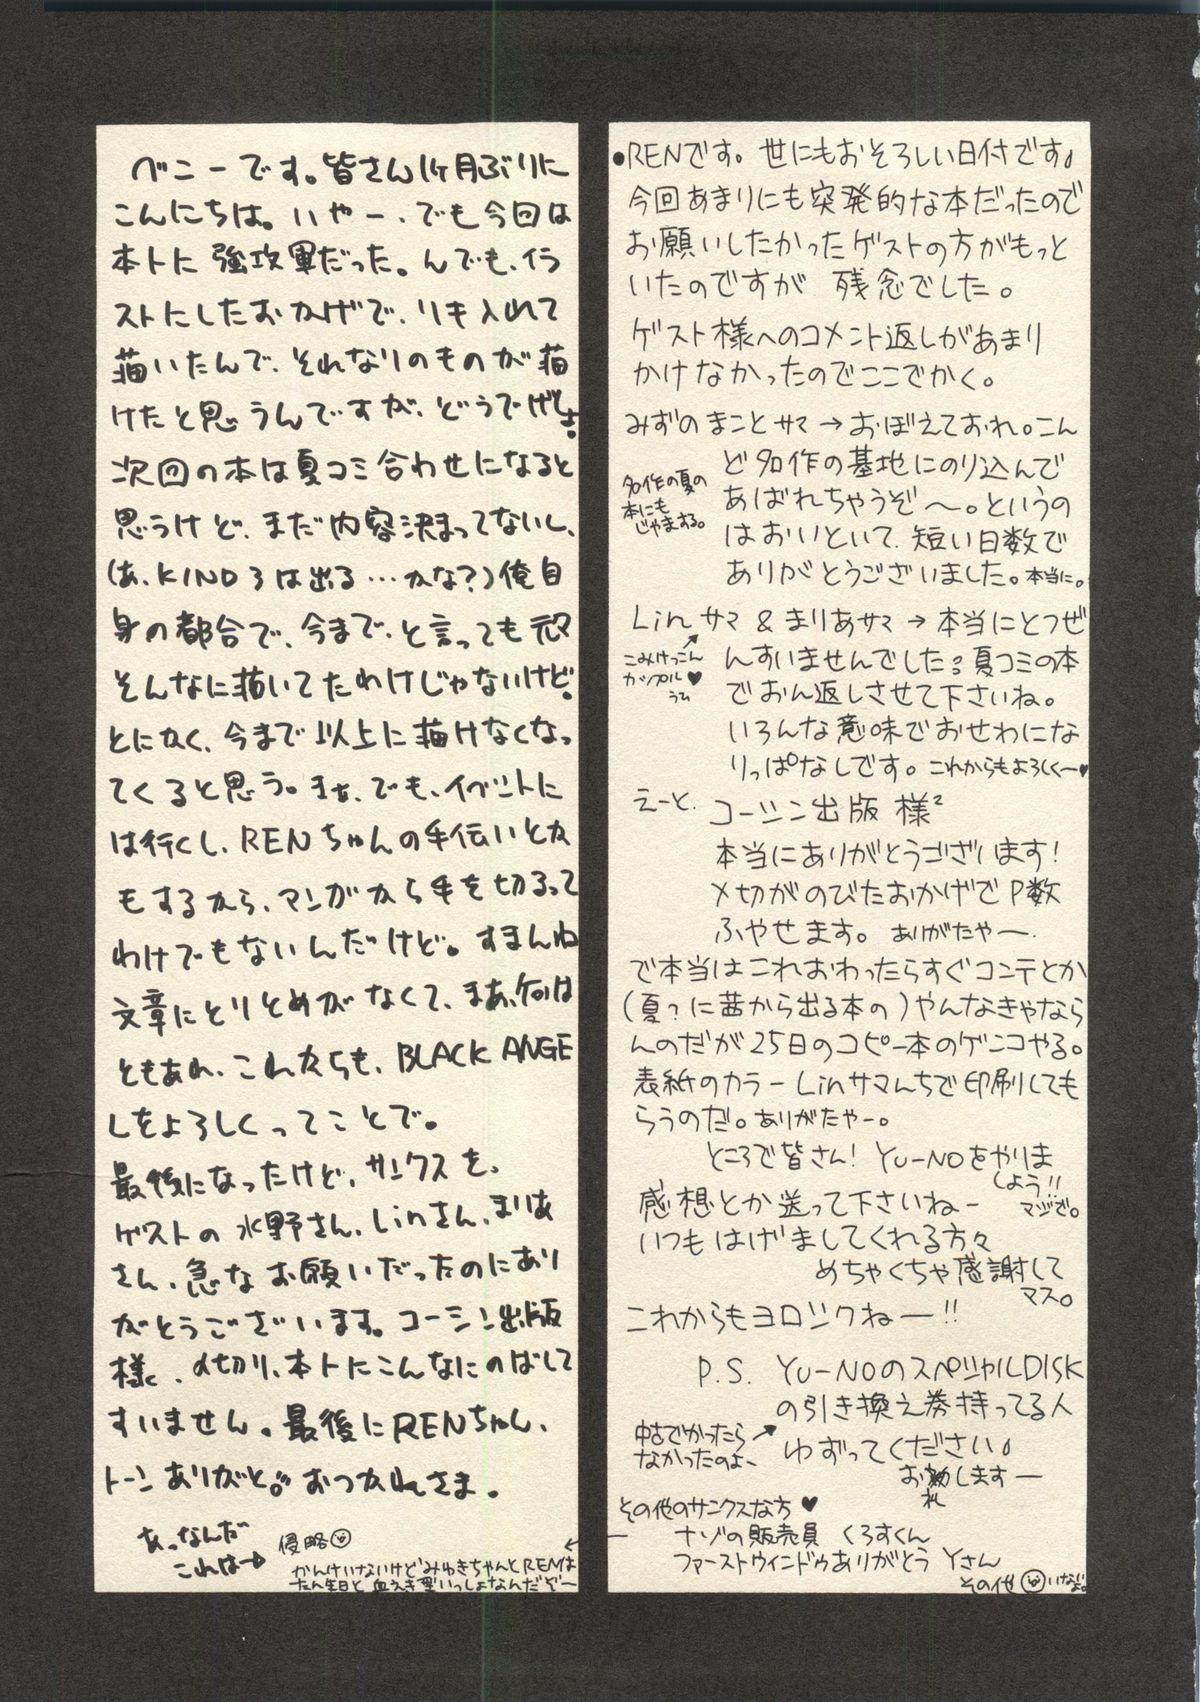 ベニーです。皆さん1ヶ月ぶりに
こんにちは。いやー、でも今回は
本トに強攻軍だった。んでも、イラ
ストにしたおかげで、リキ入れて
描いたんで、それなりのものが描
けたと思うんですが、どうでげしょ。
次回の本は夏コミ合わせになると
思うけど、まだ内容決まってないし、
(あ、KIND3は出る…かな?)俺自
身の都合で、今まで、と言っても元々
そんなに描いてたわけじゃないけど。
とにかく、今まで以上に描けなくなっ
てくると思う。まぁ、でも、イベントに
は行くし、RENちゃんの手伝いとか
もするから、マンガから手を切るって
わけでもないんだけど。すまんね
文章にとりとめがなくて、まあ、何は
ともあれ、これからも、BLACK ANGE
Lをよろしくってことで。
最後になったけど、サンクスを、
ゲストの水野さん、Linさん、まりあ
さん、急なお願いだったのにあり
がとうございます。コーシン出版
様、〆切り、本トにこんなにのばして
すいません。最後にRENちゃん、
トーンありがと。おつかれさま。
あっなんだ
これは→
侵略
かんけいないけどみゆきちゃんとRENは
たん生日と血えき型いっしょなんだぞー
●RENです。世にもおそろしい日付です。
今回あまりにも突発的な本だったので
お願いしたかったゲストの方がもっと
いたのですが 残念でした。
ゲスト様へのコメント返しがあまり
かけなかったのでここでかく。
みずのまことサマ→おぼえておれ。こん
ど名作の基地にのり込んで
あばれちゃうぞ〜。というの
はおいといて、短い日数で
ありがとうございました。本当に。
名作の夏の
本にも
じゃまする。
Linサマ & まりあサマ→本当にとつぜ
んすいませんでした。夏コミの本
でおん返しさせて下さいね。
いろんな意味でおせわにな
りっぱなしです。これからもよろしくー♥
こみけっこん
カップル♥
うふ
えーと、コーシン出版 様²
本当にありがとうございます!
〆切がのびたおかげでP数
ふやせます。ありがたやー.
で本当はこれおわったらすぐコンテとか
(夏?に茜から出る本の)やんなきゃなら
んのだが25日のコピー本のゲンコやる。
表紙のカラーLinサマんちで印刷しても
らうのだ。ありがたやー。
ところで皆さん! YU-NOをやりま
しょう!!
マジで。
感想とか送って下さいねー
いつもはげましてくれる方々
めちゃくちゃ感謝して
マス。
これからもヨロシクねー!!
P.S. YU-NOのスペシャルDISK
の引き換え券持ってる人
ゆずってください。
お礼します—
中古でかったら
なかったのよ、
その他のサンクスな方♥
ナゾの販売員 くろすくん
ファーストウィンドゥありがとう Yさん
その他